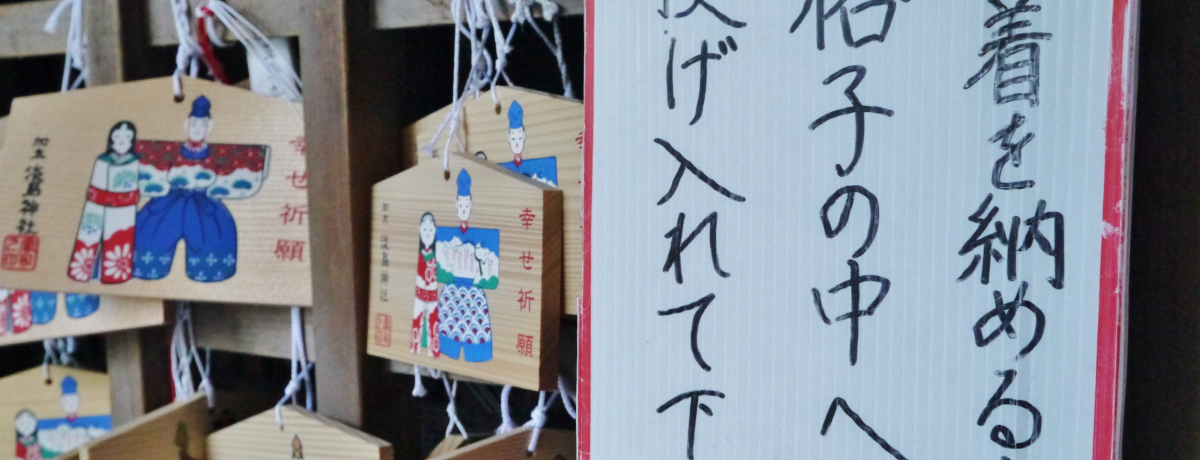 着を納める
格子の中へ
投げ入れて下
幸せ祈願
幸せ祈願
幸
加太 淡島神社
加太 淡島神社